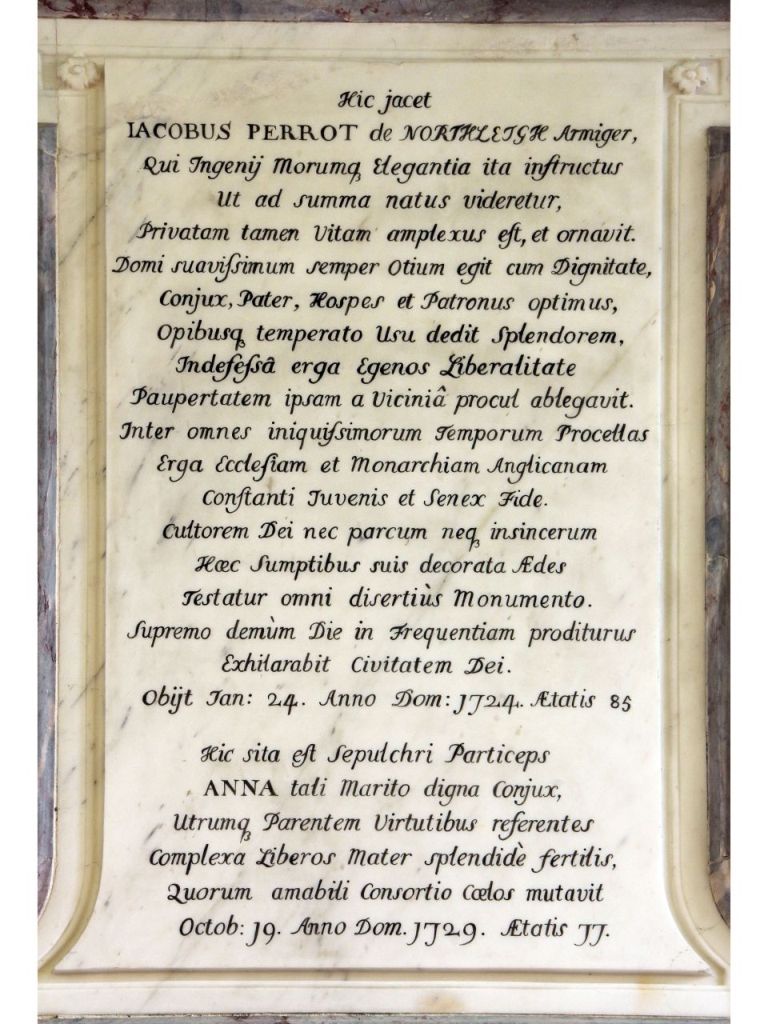 Hic jacet
IACOBUS PERROT de NORTHLEIGH Armiger,
Qui Ingenij Morumq̨ Elegantia ita inſtructus
Ut ad summa natus videretur,
Privatam tamen Vitam amplexus eſt, et ornavit.
Domi suaviſsimum semper Otium egit cum Dignitate,
Conjux, Pater, Hospes et Patronus optimus,
Opibusq̨ temperato Usu dedit Splendorem,
Indefeſsâ erga Egenos Liberalitate
Paupertatem ipsam a Viciniâ procul ablegavit.
Inter omnes iniquiſsimorum Temporum Procellas
Erga Eccleſiam et Monarchiam Anglicanam
Conſtanti Juvenis et Senex Fide.
Cultorem Dei nec parcum neq̨ insincerum
Hæc Sumptibus suis decorata Ædes
Testatur omni disertiùs Monumento.
Supremo demùm Die in Frequentiam proditurus
Exhilarabit Civitatem Dei.
Obijt Jan: 24. Anno Dom: 1724. Ætatis 85
Hic sita eſt Sepulchri Particeps
ANNA tali Marito digna Conjux,
Utrumq̨ Parentem Virtutibus referentes
Complexa Liberos Mater splendidè fertilis,
Quorum amabili Consortio Cœlos mutavit
Octob: 19. Anno Dom. 1729. Ætatis 77.